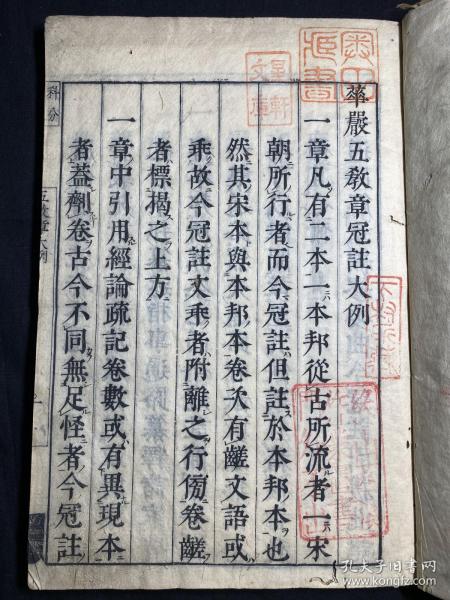 華嚴五教章冠註大例
一章凡有二本一本邦從古所流者一宋
朝所行者而今冠註但註於本邦本也
然其宋本與本邦本卷次有齾文語或
乖故今冠註文乖者附離之行傍卷齾
者標揭之上方
一章中引用經論疏記卷數或有異現本
者蓋劑卷古今不同無足怪者今冠註
科分
五教章大例
文庫
藏書
孔夫子旧书网